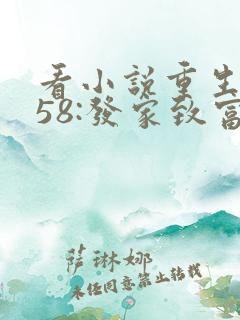 看小說重生
58:發家致富
薩琳娜
未經同意禁止转載